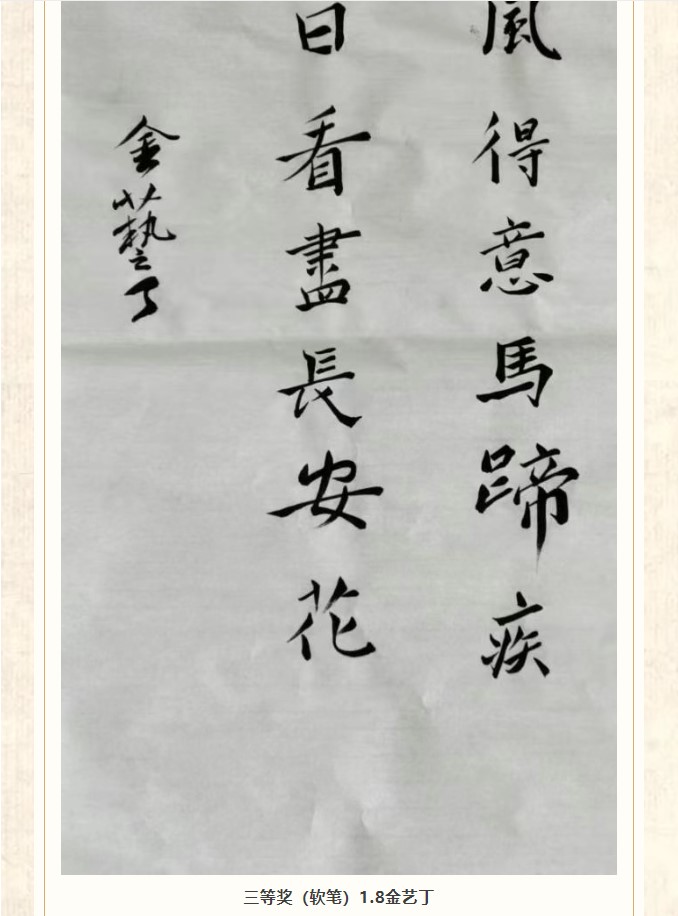 風得意馬蹄疾
日看盡長安花
金藝丁
三等奖（软笔）1.8金艺丁